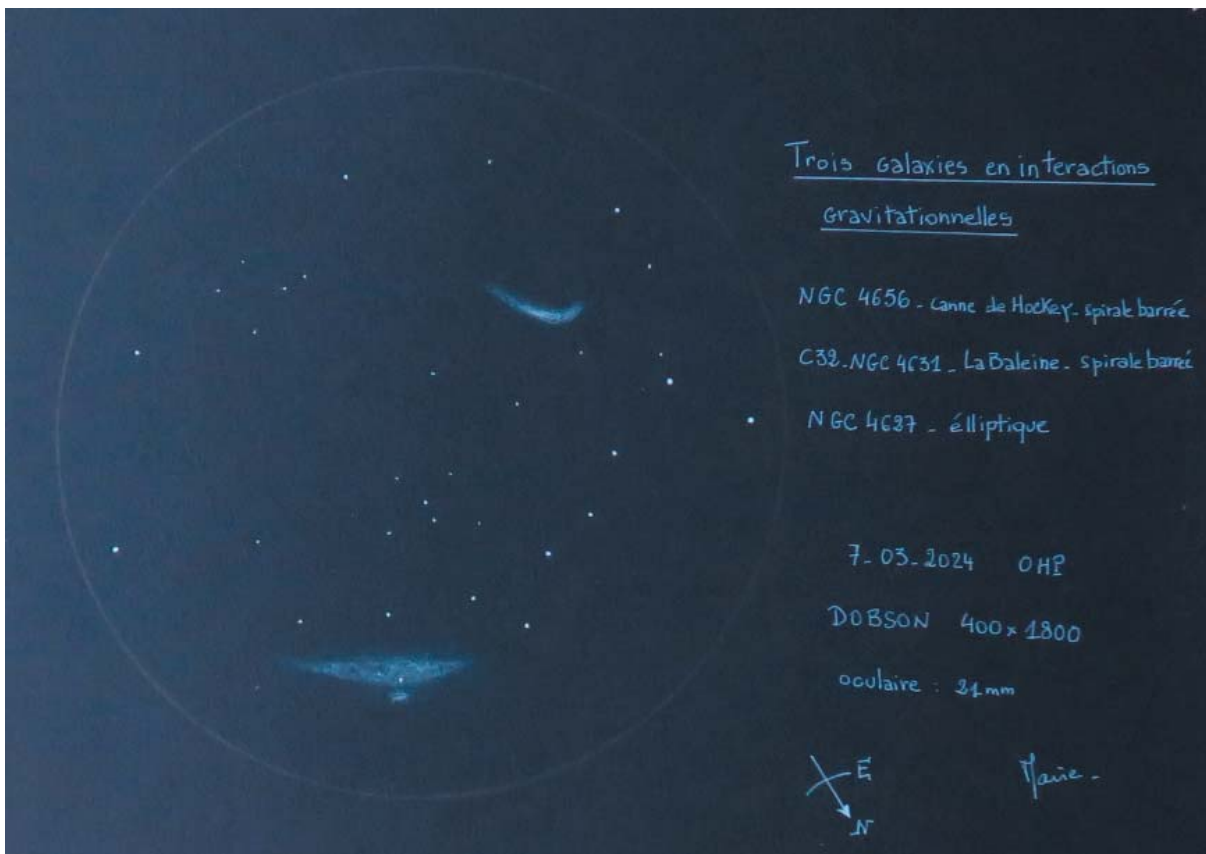 Trois galaxies en interactions
gravitationnelles
NGC 4656 - canne de Hockey - spirale barrée
C32 - NGC 4631 - La Baleine - spirale barrée
NGC 4627 - élliptique
7-03-2024 OHP
DOBSON 400 x 1800
oculaire : 21mm
E
N
Marie -